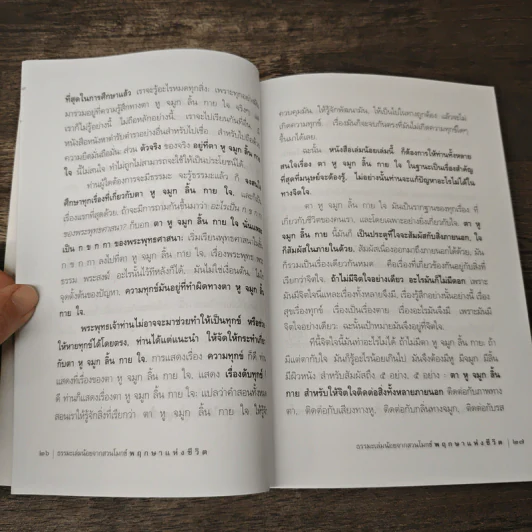 ที่สุดในการศึกษาแล้ว เราจะรู้อะไรหมดทุกสิ่ง เพราะทุกอย่าง
มารวมอยู่ที่ความรู้สึกทางตา หู จมูก ลิ้น กาย ใจ จริงๆ
เราก็ไม่รู้อย่างนี้ ไม่ถือหลักอย่างนี้ เราจะไปเรียนกันที่อื่น
หนังสือหนังหาตำรับตำราอย่างอื่นสำหรับไปเชื่อ สำหรับไปยึดถือ
ความยึดมั่นถือมั่น ส่วน ตัวจริง ของจริง อยู่ที่ตา หู จมูก ลิ้น กาย
ใจ นี้ไม่สนใจ ทำไม่ถูกไม่สามารถจะใช้ให้เป็นประโยชน์ได้
ท่านผู้ใดต้องการจะมีธรรมะ จะรู้ธรรมะแล้ว ก็ จงสนใจ
ศึกษาทุกเรื่องที่เกี่ยวกับตา หู จมูก ลิ้น กาย ใจ
เรื่องแรกที่สุดด้วย ถ้าจะมีการถามกันขึ้นมาว่า อะไรเป็น ก ข ก กา
ของพระพุทธศาสนา? ก็บอก ตา หู จมูก ลิ้น กาย ใจ นั่นแหละ
เป็น ก ข ก กา ของพระพุทธศาสนา เริ่มเรียนพุทธศาสนาในชั้น
ก ข ก กา ลงไปที่ตา หู จมูก ลิ้น กาย ใจ เรื่องพระพุทธ พระ
ธรรม พระสงฆ์ อะไรนั้นไว้ทีหลังก็ได้ มันไม่ใช่เงื่อนต้น ไม่ใช่
จุดตั้งต้นของปัญหา ความทุกข์มันอยู่ที่ทำผิดทางตา หู จมูก ลิ้น
กาย ใจ
พระพุทธเจ้าท่านไม่อาจจะมาช่วยทำให้เป็นทุกข์ หรือช่วย
ให้หายทุกข์ได้โดยตรง ท่านได้แต่แนะนำ ให้จัดให้กระทำเกี่ยว
กับตา หู จมูก ลิ้น กาย ใจ การแสดงเรื่อง ความทุกข์ ก็ดี ท่าน
แสดงที่เรื่องของตา หู จมูก ลิ้น กาย ใจ แสดง เรื่องดับทุกข์ ก็
ดี ท่านก็แสดงเรื่อง ตา หู จมูก ลิ้น กาย ใจ แปลว่าคำสอนทั้งหมด
สอนเราให้รู้จักสิ่งที่เรียกว่า ตา หู จมูก ลิ้น กาย ใจ ให้รู้จัก
๒๖ | ธรรมะเล่มน้อยจากสวนโมกข์ พฤกษาแห่งชีวิต
ควบคุมมัน, ให้รู้จักพัฒนามัน, ให้เป็นไปในทางถูกต้อง แล้วจะไม่
เกิดความทุกข์ เรื่องมันก็จะจบกันตรงที่มันไม่เกิดความทุกข์ใดๆ
ขึ้นมาได้เลย
ฉะนั้น หนังสือเล่มน้อยเล่มนี้ ก็ต้องการให้ท่านทั้งหลาย
สนใจเรื่อง ตา หู จมูก ลิ้น กาย ใจ ในฐานะเป็นเรื่องสำคัญ
ที่สุดที่มนุษย์จะต้องรู้, ไม่อย่างนั้นท่านจะแก้ปัญหาอะไรไม่ได้ใน
ทางจิตใจ
ตา หู จมูก ลิ้น กาย ใจ มันเป็นรากฐานของทุกเรื่อง ที่
เกี่ยวกับชีวิตของคนเรา, และโดยเฉพาะอย่างยิ่งเกี่ยวกับใจ ตา
หู จมูก ลิ้น กาย นี้มันก็ เป็นประตูที่จะสัมผัสกับสิ่งภายนอก, ใจ
ก็สัมผัสในภายในด้วย, สัมผัสเนื่องออกมาถึงภายนอกได้ด้วย, มันก็
รวมเป็นเรื่องเดียวกันหมด คือเรื่องที่เกี่ยวข้องกันอยู่กับสิ่งที่
เรียกว่าจิตใจ. ถ้าไม่มีจิตใจอย่างเดียว อะไรมันก็ไม่มีดอก เพราะ
มันมีจิตใจนี่แหละเรื่องทั้งหลายจึงมี, เรื่องรู้สึกอย่างนั้นอย่างนี้ เรื่อง
สุขเรื่องทุกข์ เรื่องเป็นเรื่องตาย เรื่องอะไรมันจึงมี เพราะมันมี
จิตใจอย่างเดียว ฉะนั้นเป้าหมายมันจึงอยู่ที่จิตใจ
ทีนี้จิตใจนี้มันทำอะไรไม่ได้ ถ้าไม่มีตา หู จมูก ลิ้น กาย; ถ้า
มีแต่ตากับใจ มันก็รู้อะไรน้อยเกินไป มันจึงต้องมีหู มีจมูก มีลิ้น
มีผิวหนัง สำหรับสัมผัสถึง ๕ อย่าง, ๕ อย่าง : ตา หู จมูก ลิ้น
กาย สำหรับให้จิตใจติดต่อสิ่งทั้งหลายภายนอก ติดต่อกับภาพทาง
ตา, ติดต่อกับเสียงทางหู, ติดต่อกับกลิ่นทางจมูก, ติดต่อกับรส
ธรรมะเล่มน้อยจากสวนโมกข์ พฤกษาแห่งชีวิต | ๒๗